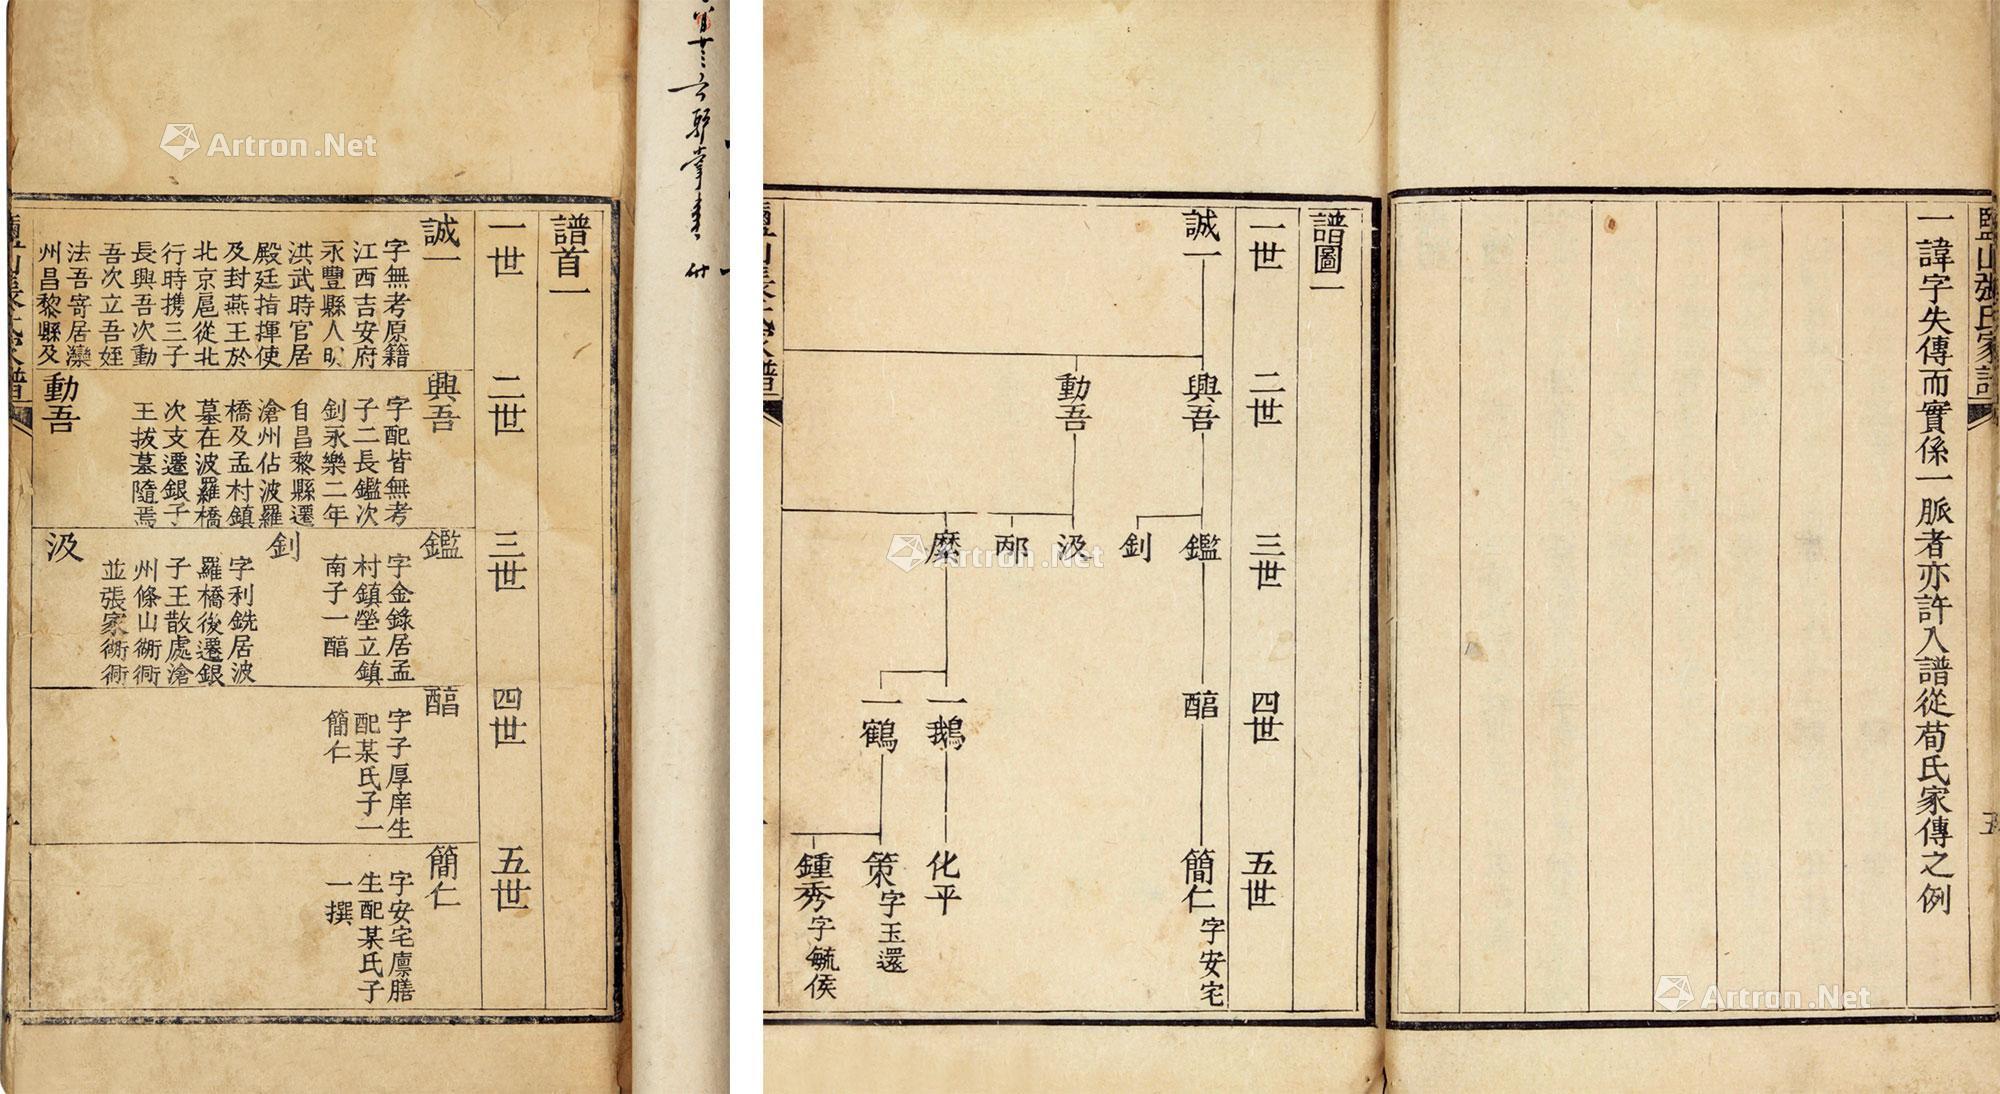 譜首一
一世
二世
三世
四世
五世
誠一
字無考原籍
江西吉安府
永豐縣人明
洪武時官居
殿廷指揮使
及封燕王於
北京扈從北
行時携三子
長興吾次動
吾次立吾姪
法吾寄居灤
州昌黎縣及
興吾
字配皆無考
子二長鑑次
釗永樂二年
自昌黎縣遷
滄州佔波羅
橋及孟村鎮
墓在波羅橋
次支遷銀子
王拔墓隨焉
動吾
鑑
字金錄居孟
村鎮塋立鎮
南子一醕
釗
字利銑居波
羅橋後遷銀
子王散處滄
州條山衚衕
並張家衚衕
汲
醕
字子厚庠生
配某氏子一
簡仁
簡仁
字安宅廪膳
生配某氏子
一撰
鹽山張氏家譜
一諱字失傳而實係一脈者亦許入譜從荀氏家傳之例
五
譜圖一
一世
二世
三世
四世
五世
誠一
興吾
動吾
鑑
釗
汲
邴
麽
醕
一鵝
一鶴
簡仁字安宅
化平
策字玉還
鍾秀字毓侯
Artron.Net
Artron.Net
Artron.Net